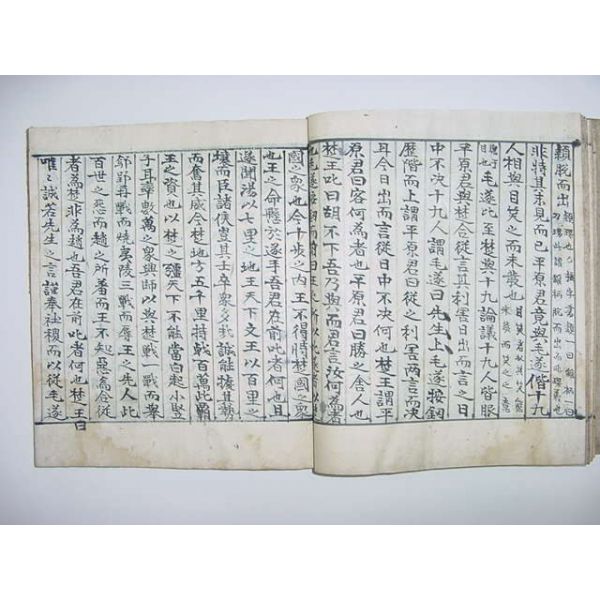 穎脫而出
非特其末見而已平原君竟與毛遂偕十九
人相與目笑之而未發也
毛遂比至楚與十九論議十九人皆服
平原君與楚合從言其利害日出而言之日
中不決十九人謂毛遂曰先生上毛遂按釰
歷階而上謂平原君曰從之利害兩言而決
耳今日出而言從日中不決何也楚王謂平
原君曰客何為者也平原君曰勝之舍人也
楚王叱曰胡不下吾乃與而君言汝何為者
也毛遂按釰而前曰王之所以叱遂者以楚
國之衆也今十步之內王不得恃楚國之衆
也王之命懸於遂手吾君在前叱者何也且
遂聞湯以七里之地王天下文王以百里之
壤而臣諸侯豈其士卒衆多哉誠能據其勢
而奮其威今楚地方五千里持戟百萬此霸
王之資也以楚之彊天下不能當白起小竪
子耳率數萬之衆興師以與楚戰一戰而擧
鄢郢再戰而燒夷陵三戰而辱王之先人此
百世之怨而趙之所羞而王不知惡焉合從
者為楚非為趙也吾君在前叱者何也楚王曰
唯〻誠若先生之言謹奉社稷而以從毛遂